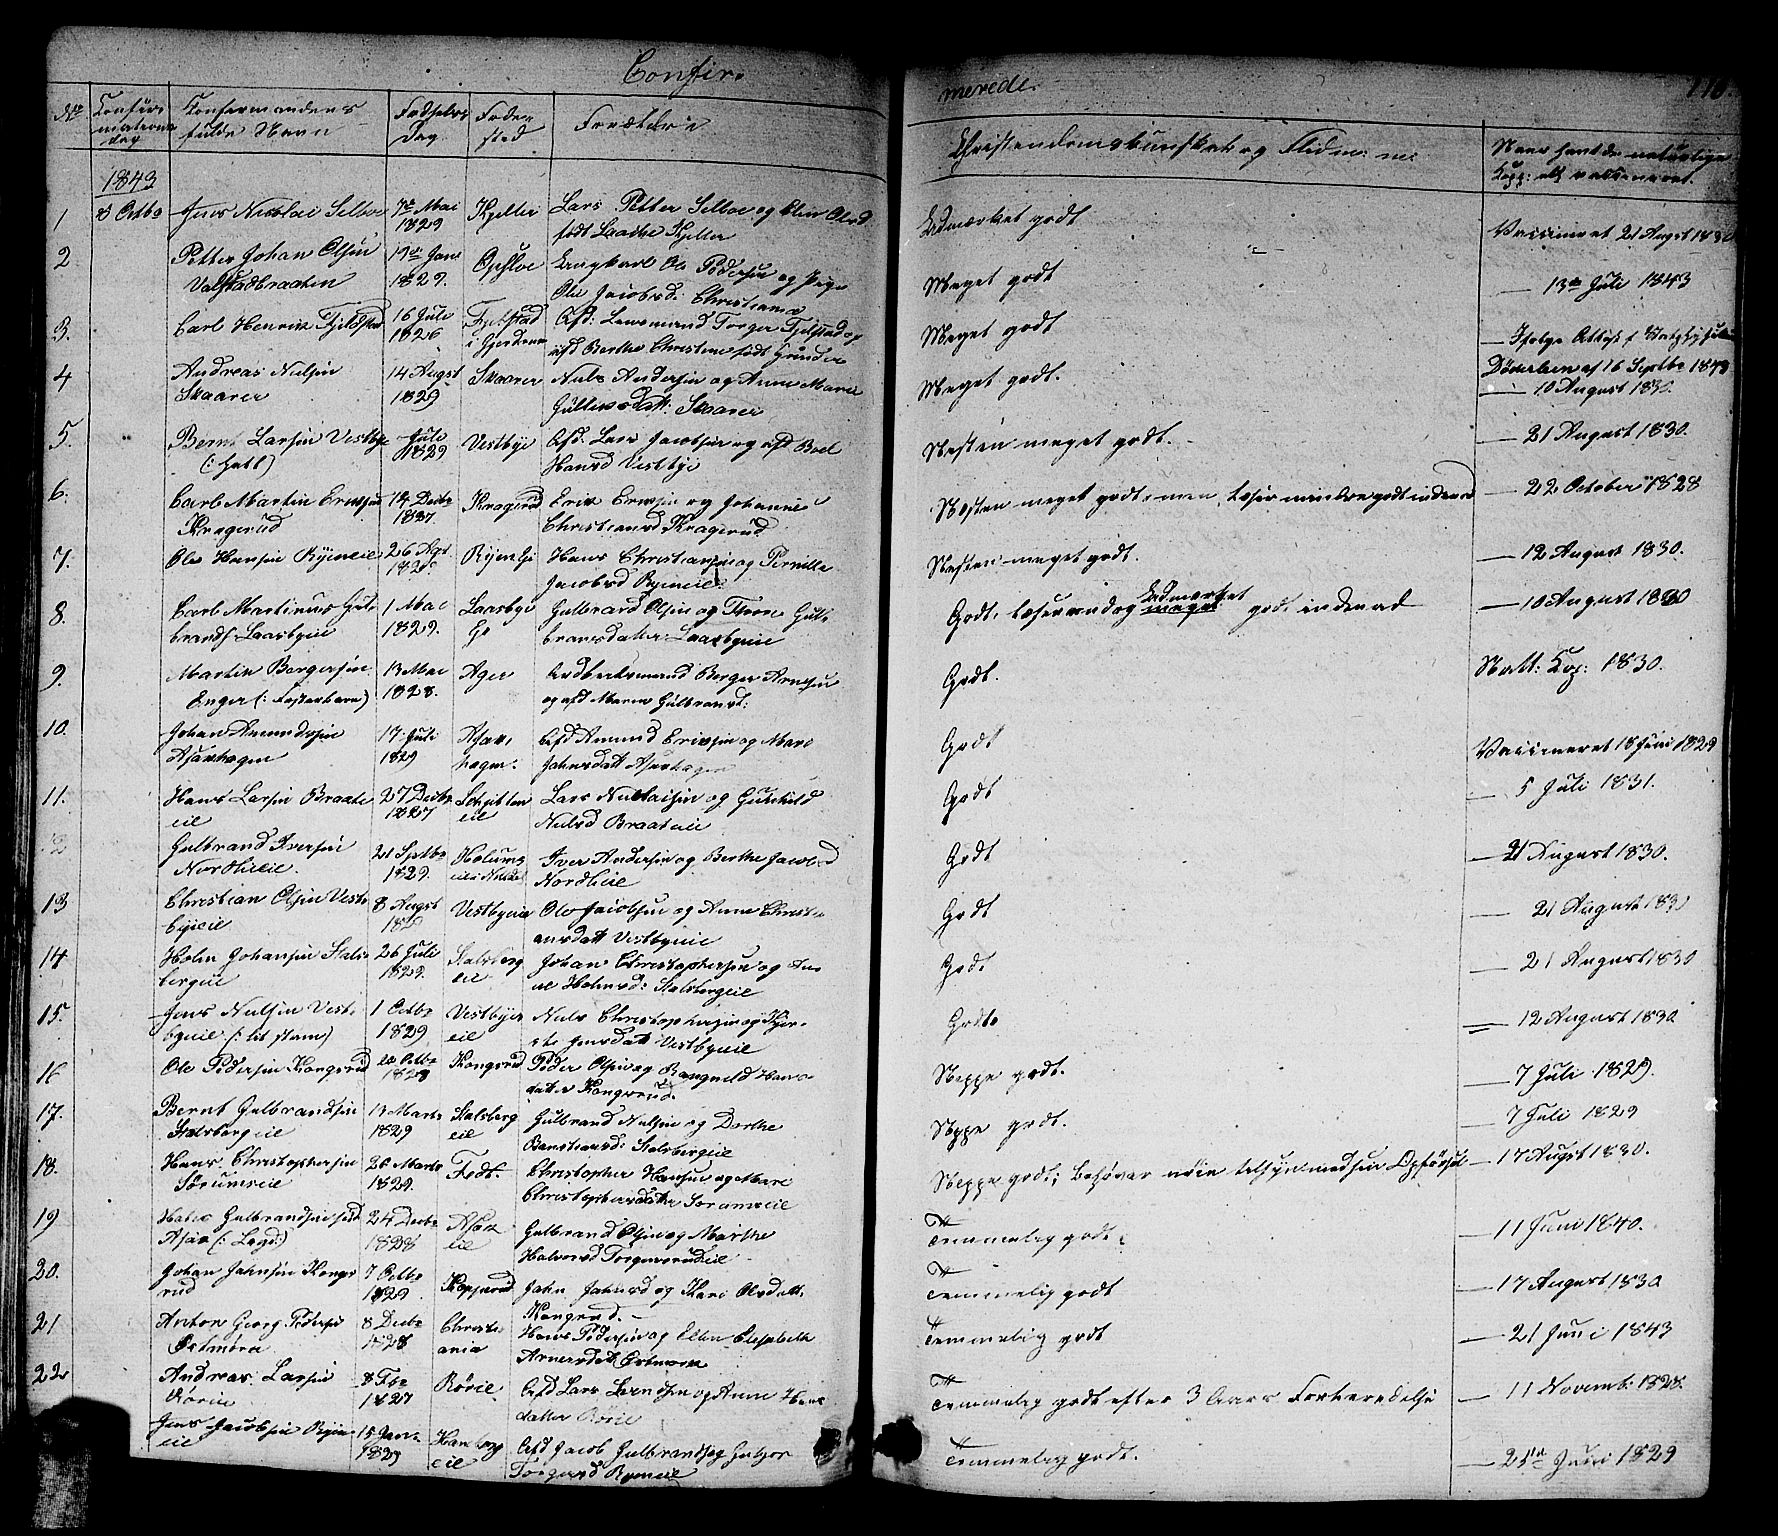 Confir-
merede.
No
Confir-
mations
dag
Konfirmandens
fulde Navn
Fødsels
Dag
Føde-
sted
Forældre
Christendomskundskab og Flid
Naar havt de naturlige
Kopp: ell vaccineret.
1843
1
8 Octbr
Jens Nicolai Selboe
7de Mai
1829
Kjeller
Lars Petter Selboe og Oline Olsd
født Kjeller
Udmærket godt
Vaccineret 21 August 1830
2.
Petter Johan Olsen
Valstadbraaten
19de Janr
1829.
Opsloe
Ole Pedersen og Pige
Oli Jacobsd: Christiania
Meget godt
— 13de Juli 1843
3.
Carl Henrik Fjeldstad
16 Juli
1826
Fjelstad
i Gjerdrum
Afd: Lensmand Torger Fjelstad og
afd Berthe Christine født Grinder
Meget godt
— Ifølge Attest f
Døderlein af 16 Septbr 1843
4
Andreas Nielsen
Skaarer
14 Augst
1829
Skaarer
Niels Andersen og Anne Marie
Gullersdatt: Skaarer
Meget godt.
— 10 August 1830.
5.
Bernt Larsen Vestbye
Juli
1829
Vestbye
Afd. Lars Jacobsen og afd Boel
Hansd Vestbye
Næsten meget godt.
— 21 August 1830.
6.
Carl Martin Ericsen
Kragerud
14 Decbr
1827.
Kragerud
Eric Ericsen og Johanne
Christiansd Kragerud
Næsten meget godt, men læser mindre godt indenad
— 22 October 1828
7.
Ole Hansen Ryeneie
26 Agt
1829
Ryeneie
Hans Christiansen og Pernille
Jacobsd Ryeneie.
Næsten meget godt.
— 12 August 1830.
8.
Carl Martinus Gul-
brands. Laasbyeie
1 Mai
1829.
Laasbye
Gulbrand Olsen og Thore Gul-
bransdatter Laasbyeie
Godt, læser endog Udmærket meget godt indenad
— 10 August 1830
9.
Martin Bergersen
Enger (: Fosterbarn)
13 Mai
1828.
Ager
Arbeidsmand Berger Arnesen
og afd Maren Gulbransd:
Godt.
Natt: Kop: 1830.
10.
Johan Amundsen
Asakhagen
17 Juli
1829
Asak-
hagen.
Afd Amund Ericsen og Mari
Johnsdatt Asakhagen
Godt
Vaccineret 18 Juni 1829
11.
Hans Larsen Braate
eie
27 Decbr
1827
Schøitten
eie
Lars Nicolaisen og Gunhild
Nielsd Braateeie
Godt
— 5 Juli 1831.
12
Gulbrand Iversen
Nordlieeie.
21 Septbr
1829.
Holums
eie i Nitedal
Iver Andersen og Berthe Jacobsd
Nordlieie
Godt
— 21 August 1830.
13
Christian Olsen Vest-
byeeie
8 Augst
1829
Vestbyeie
Ole Jacobsen og Anne Christi-
ansdatt Vestbyeie
Godt
— 21 August 1830
14
Holm Johansen Stals-
bergeie
26 Juli
1829.
Stalsberg
eie
Johan Christophersen og An-
ne Holmsd: Stalsbergeie
Godt
— 21 August 1830
15.
Jens Nielsen Vest-
byeie
1 Octbr
1829
Vestbye
eie
Niels Christophersen og Kjer-
ste Jensdatt Vestbyeie
Godt
— 12 August 1830
16
Ole Pedersen Kongsrud
Octbr
1828
Kongsrud
Peder Olsen og Rangnild Hans-
datter Kongsrud.
Neppe godt.
— 7 Juli 1829.
17.
Bernt Gulbrandsen
Stalsbergeie
13 Marts
1829
Stalsberg
eie
Gulbrand Nielsen og Dorthe
Stalsbergeie
Neppe godt.
— 7 Juli 1829
18.
Hans Christophersen
Sørumseie
26 Marts
1829.
Fedt.
Christopher Hansen og Mari
Christophersdatter Sørumseie
Neppe godt; behøver nøie tilsyn med sin Opførsel
— 17 Augst 1830.
19
Gulbrandsen
Asak (: Legd:)
24 Decbr
1828
Asak
eie
Gulbrand Olsen og Marthe
Halvorsd Torgunrudeie
Temmelig godt.
— 11 Juni 1840.
20.
Johan Jahnsen Kongs
rud
7 Octbr
1829
Kopperud
Jahn Jahnsd og Kari Olsdatt.
Kongsrud.
Temmelig godt
— 17 August 1830
21
Anton Georg Pedersen
Østmoen
8 Decbr
1828
Christi-
ania
Hans Pedersen og Ellen Elisabeth
Arnersdatt Østmoen
Temmelig godt
— 21 Juni 1843
22
Andreas Larsen
Rørie
8 Fbr
1827
Rørie
Afd Lars Larsen og Anne Hans
datter Rørie
Temmelig godt efter 3 Aars Forberedelse
— 11 Novemb: 1828.
Jens Jacobsen Ryen
eie
15 Janr
1829
Hamborg
eie
Afd Jacob Gulbrands og Gubjør
Torgersd Ryeneie
Temmelig godt.
— 25de Juni 1829